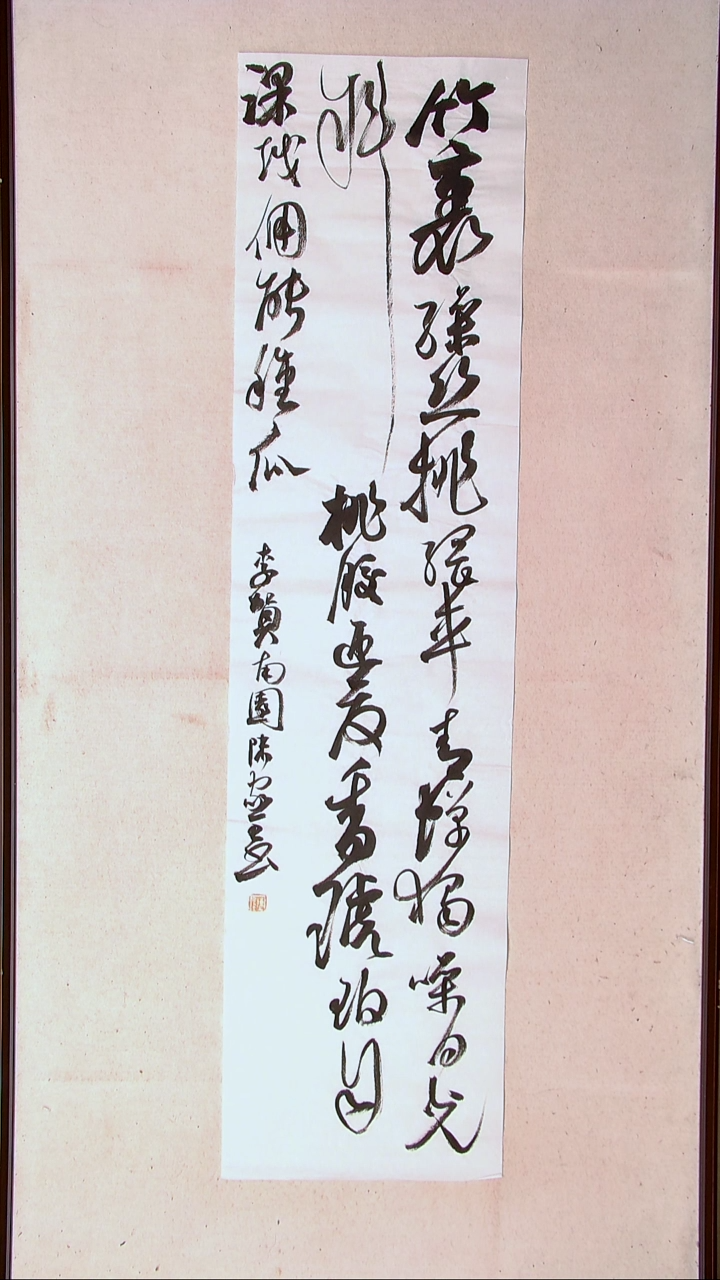 竹裏繰丝挑網車青蟬獨噪日光
斜桃膠迎夏香琥珀自
課越佣能種瓜
李賀南園